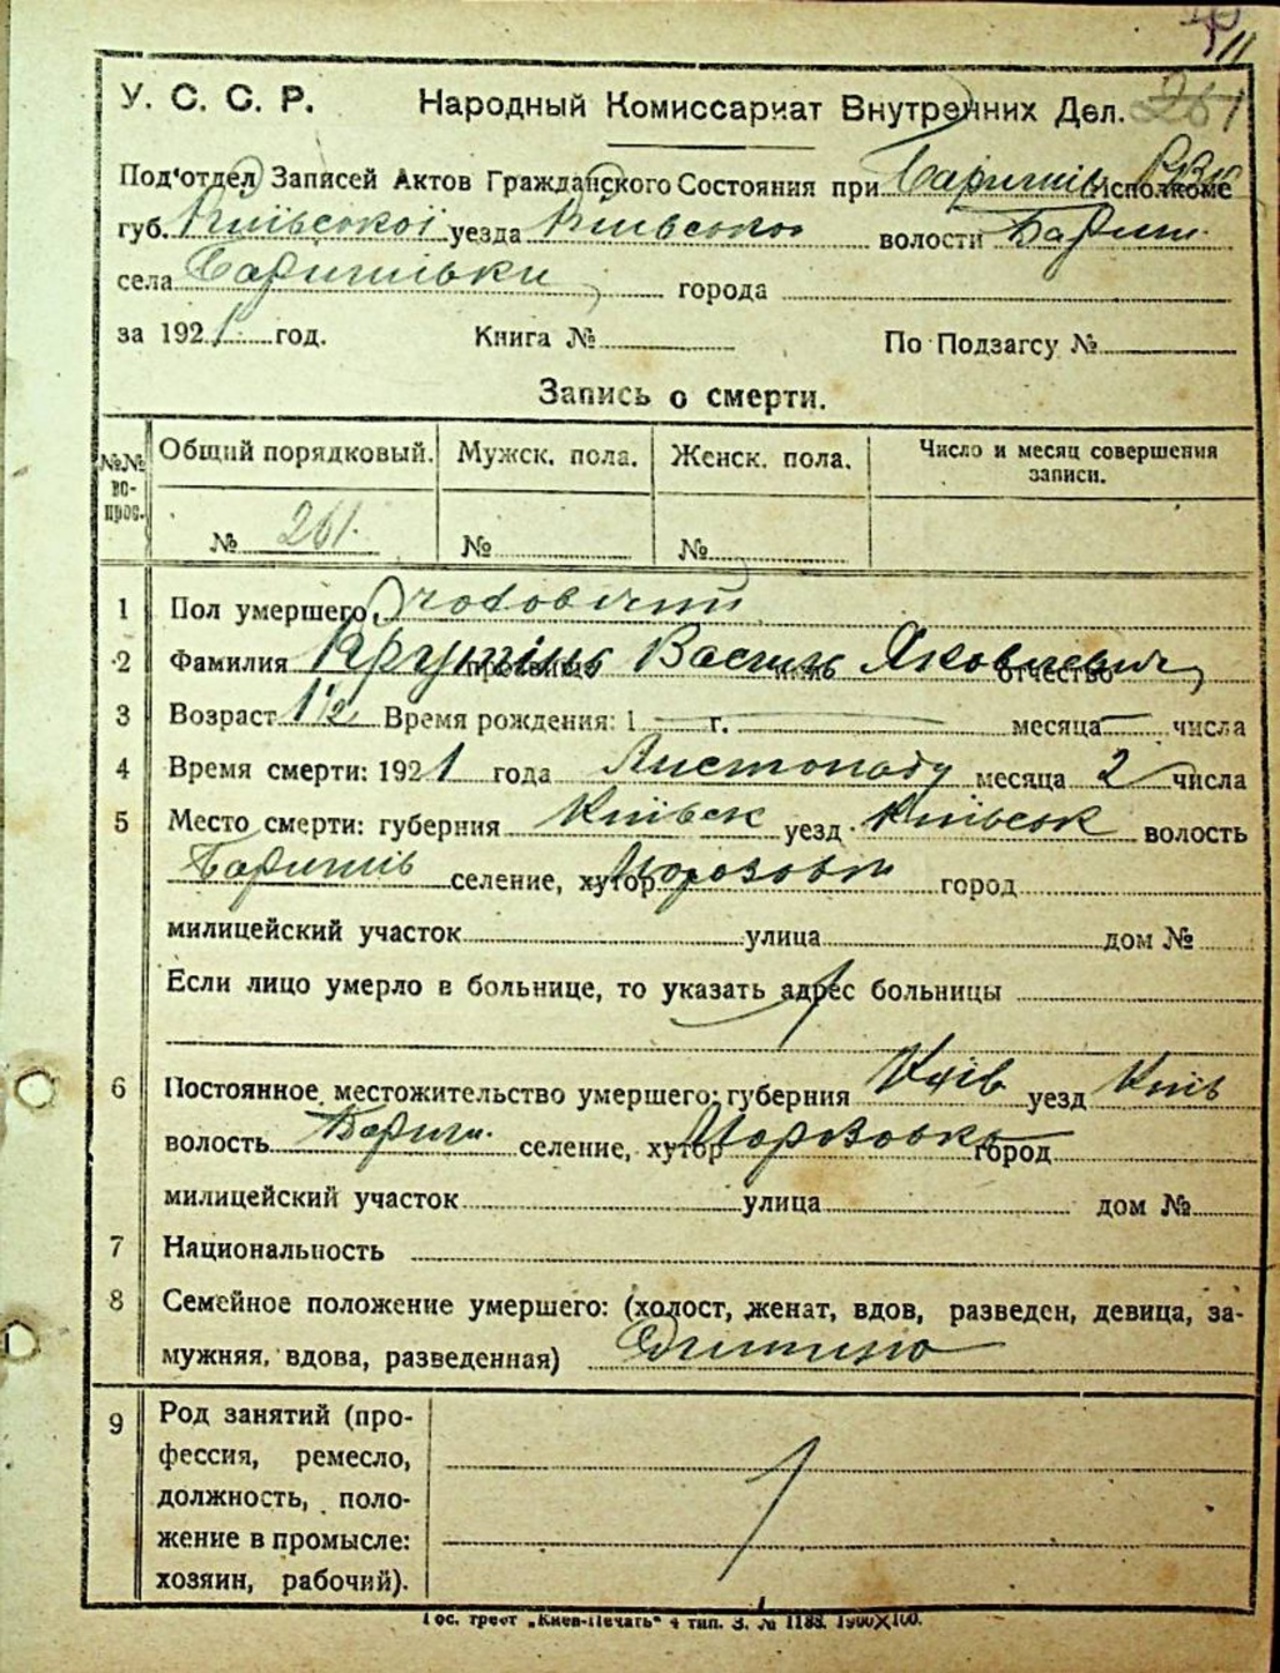 11
261
У. С. С. Р. Народный Комиссариат Внутренних Дел.
Под‘отдел Записей Актов Гражданского Состояния при Баришів. РВК исполкоме
губ. Київської уезда Київського волости Бариш.
села Баришівки города
за 1921 год. Книга № По Подзагсу №
Запись о смерти.
№№ во- прос. Общий порядковый. Мужск. пола. Женск. пола. Число и месяц совершения записи.
№ 261. № №
1 Пол умершего
2 Фамилия прозвище Василь имь Яковлевич отчество
3 Возраст 1½ Время рождения: 1 г. месяца числа
4 Время смерти: 1921 года Листопаду месяца 2 числа
5 Место смерти: губерния Київськ уезд Київськ волость
Баришів селение, хутор город
милицейский участок улица дом №
Если лицо умерло в больнице, то указать адрес больницы
6 Постоянное местожительство умершего: губерния Київ уезд Київ
волость Бариш. селение, хутор Морозовка город
милицейский участок улица дом №
7 Национальность
8 Семейное положение умершего: (холост, женат, вдов, разведен, девица, за-
мужняя, вдова, разведенная)
9 Род занятий (про-
фессия, ремесло,
должность, поло-
жение в промысле:
хозяин, рабочий).
Гос. трест „Киев-Печать“ 4 тип. З. № 1188. 1900X100.